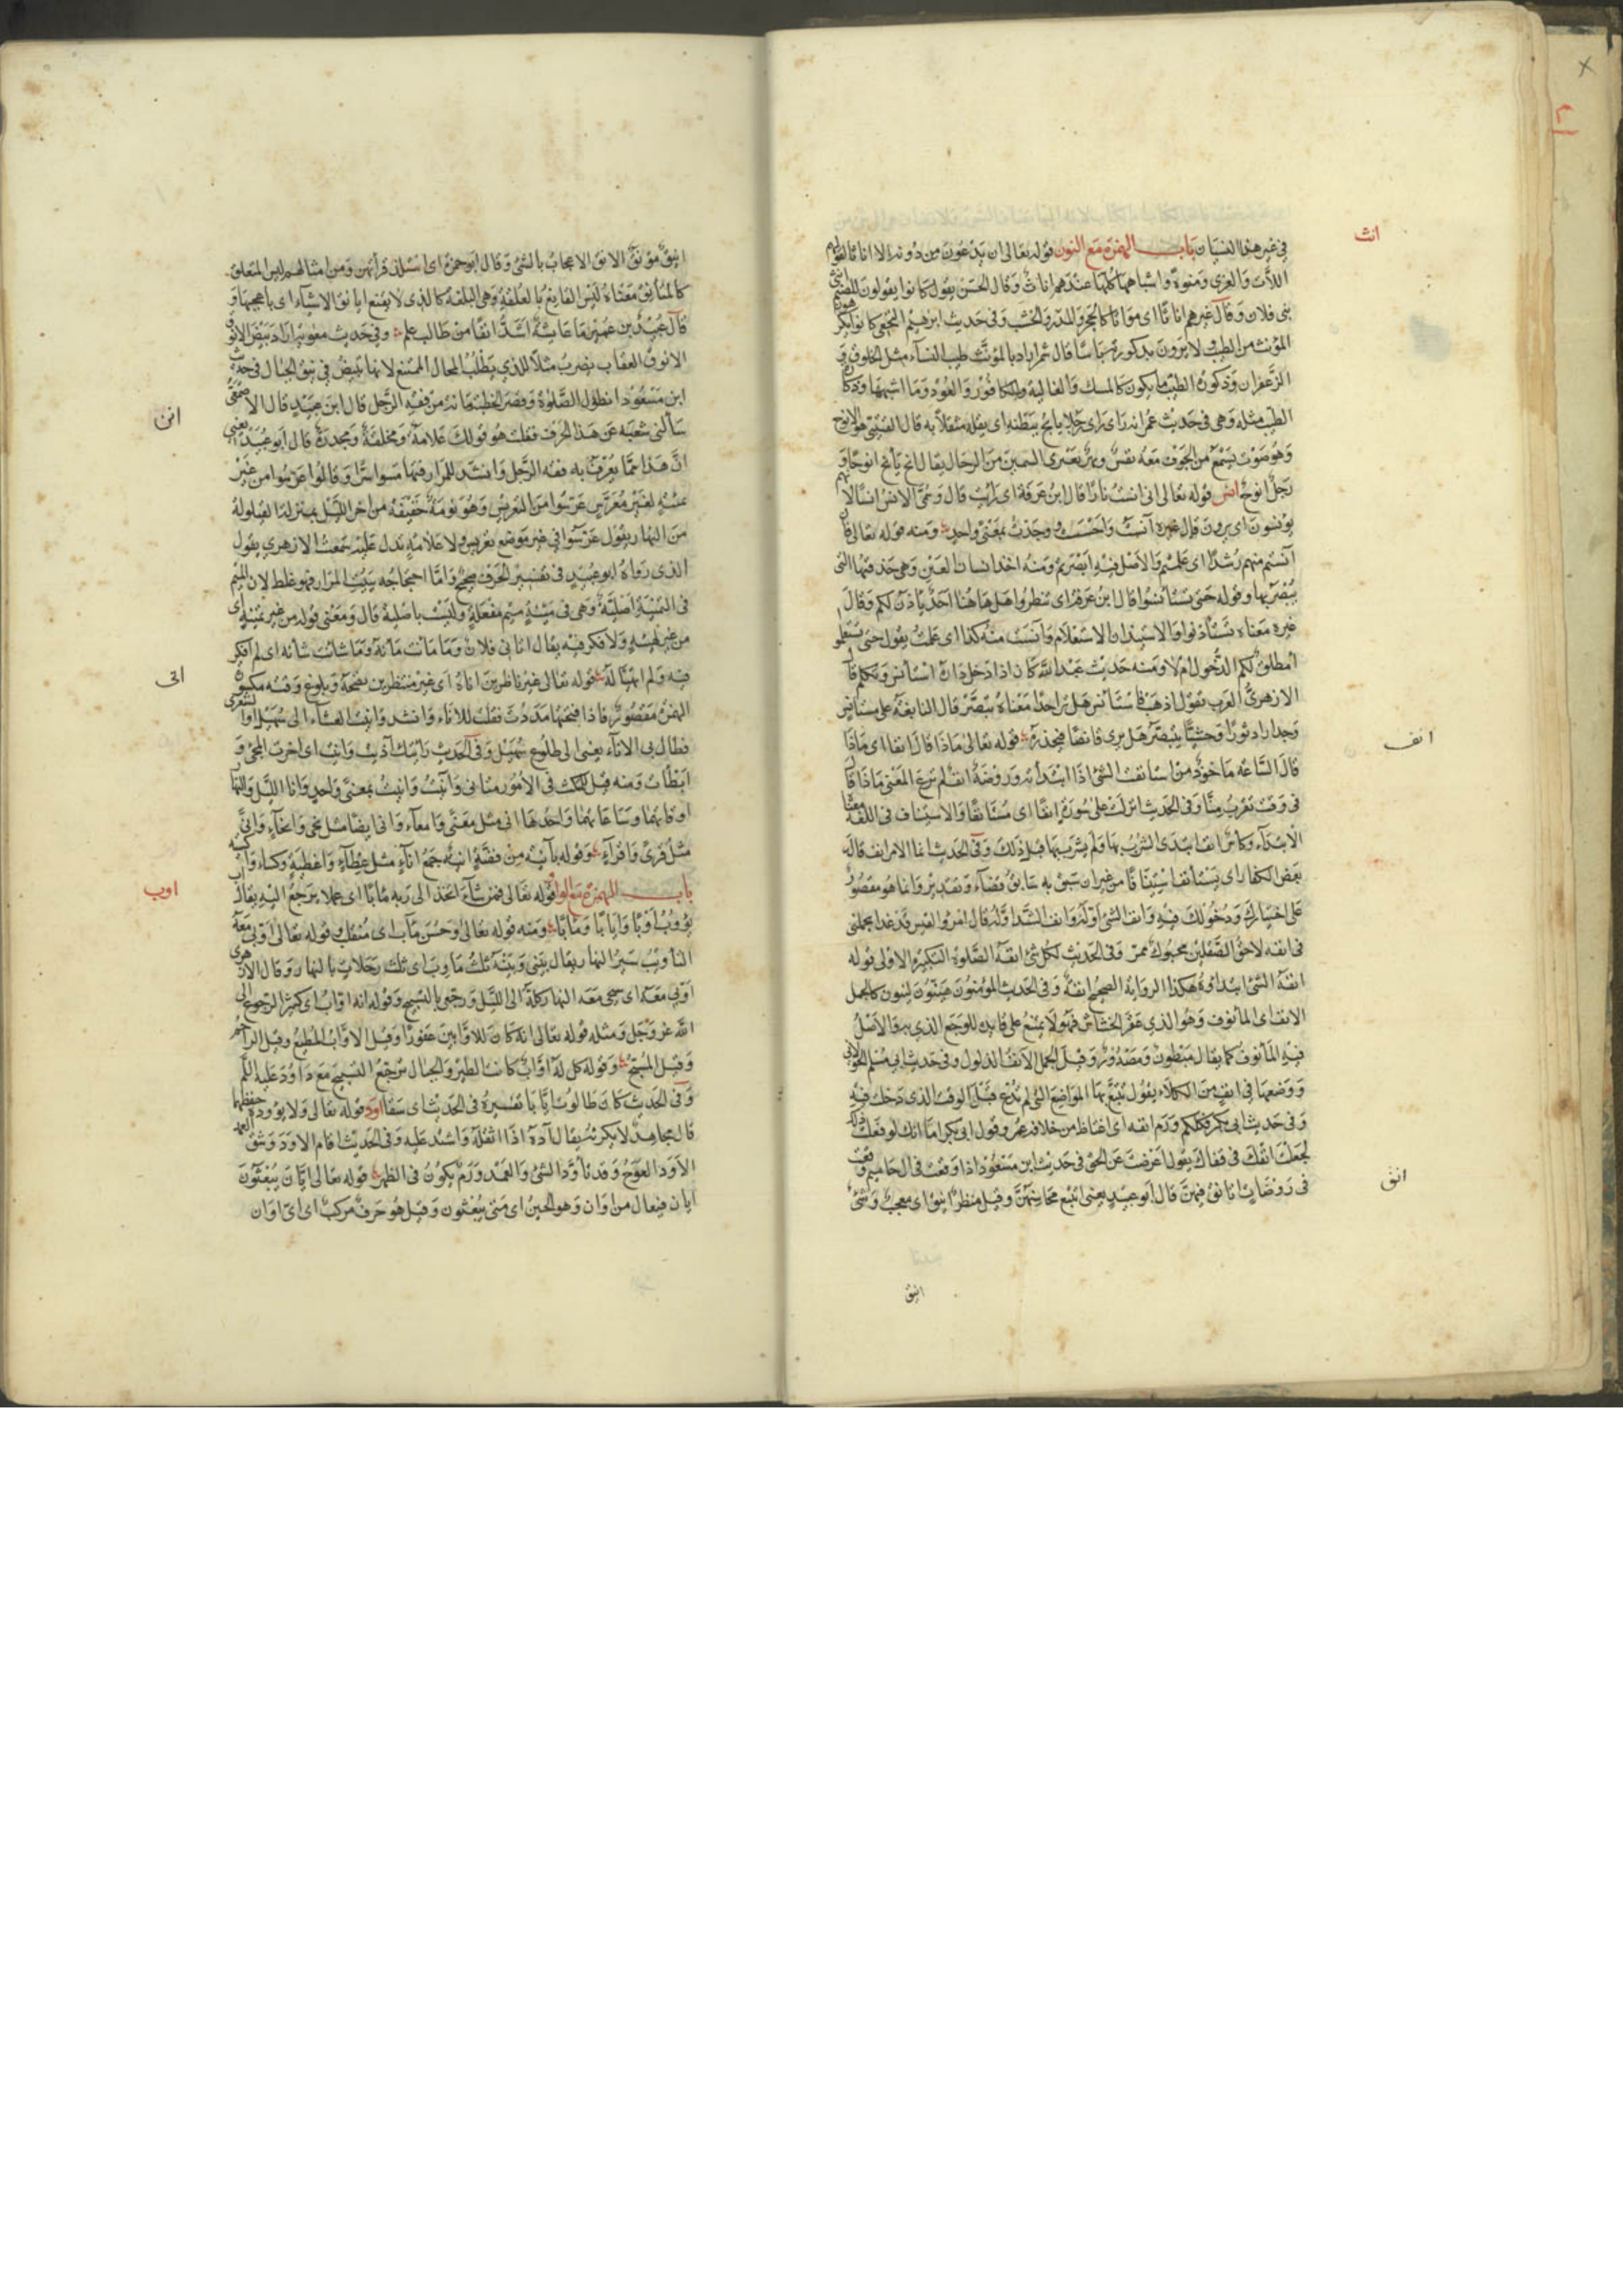 انث
في غير هذا النسيان باب الهمزة مع النون قوله تعالى ان يدعون من دونه الا اناثا قالقولهم
اللات والعزى ومنوة واشباهها كلها عندهم اناث وقال الحسن يقول كانوا يقولون للصنم انثى
بنى فلان وقال غيرهم اناثا اى مواتا كالحجر والمدر والخشب وفى حديث ابرهيم النخعى كانوا يكرهون
المؤنث من الطيب ولا يرون بذكورته باسا قال شمر اراد بالمؤنث طيب النساء مثل الخلوق و
الزعفران وذكورة الطيب ما يكون كالمسك والغالية والكافور والعود وما اشبهها وذكارة
الطيب مثله وهى فى حديث عمر انه راى رجلا يانح ببطنه اى يقله مثقلا به قال القتيبى هو الانوح
وهو صوت يسمع من الجوف معه نفس وبهر يعترى السمين من الرجال يقال انح يأنح انوحا و
رجل انوح انس قوله تعالى انى انست نارا قال ابن عرفة اى رايت قال وسمى الانس انسا لانهم
يونسون اى يرون قال غيره آنست واحسست ووجدت بمعنى واحد ومنه قوله تعالى فان
آنستم منهم رشدا اى علمتم والاصل فيه ابصرتم ومنه اخذ انسان العين وهى حدقتها التى
يبصر بها وقوله حتى تستأنسوا قال ابن عرفة اى تنظروا هل هاهنا احد يأذن لكم وقال
غيره معناه تستأذنوا والاستيذان الاستعلام وآنست منه كذا اى علمت يقول حتى تستعلموا
امطلق لكم الدخول ام لا ومنه حديث عبد الله كان اذا دخل داره استأنس وتكلم قال
الازهرى العرب تقول اذهب فاستأنس هل ترا احدا معناه تبصر قال النابغة على مستانس
وحد اراد ثورا وحشيا يتبصر هل يرى قانصا فيحذره قوله تعالى ماذا قال انفا اى ماذا
انف
قال الساعه ماخوذ من استانف الشئ اذا ابتدأته وروضة انف لم ترع المعنى ماذا قال
فى وقت يقرب منا وفى الحديث انزلت على سورة انفا اى مستانفا والاستيناف فى اللغة معناه
الابتداء وكأس انف ابتدى الشرب بها ولم يشرب بها قبل ذلك وفى الحديث انما الامر انف قاله
بعض الكفار اى يستأنف استينافا من غير ان سبق به سابق قضاء وتقدير وانما هو مقصور
على اختيارك ودخولك فيه وانف الشئ اوله وانف الشد اوله قال امرؤ القيس قد غدا يحملنى
فى انفه لاحق الصقلين محبوك ممر وفى الحديث لكل شئ انفة وانفة الصلوة التكبيرة الاولى قوله
انفة الشئ ابتداؤه هكذا الرواية الصحيح انفة وفى الحديث المؤمنون هينون لينون كالجمل
الانف اى المانوف وهو الذى عقر الخشاش فهو لا يمتنع على قايده للوجع الذى به والاصل
فيه المأنوف كما يقال مبطون ومصدور وقيل الجمل الانف الذلول وفى حديث ابى مسلم الخولانى
ووضعها فى انف من الكلاء يقول تتبع بها المواضع التى لم ترع قبل الوقت الذى دخلت فيه
وفى حديث ابى بكر فكلكم ورم انفه اى اغتاظ من خلافة عمر وقول ابى بكر اما انك لو فعلت ذلك
لجعلت انفك فى قفاك يقول اعرضت عن الحق فى حديث ابن مسعود اذا وقعت فى ال حاميم وقعت
انق
فى روضات اتانق فيهن قال ابو عبيد يعنى اتتبع محاسنهن وقيل منظر انيق اى معجب وشئ
انيق
انيق مونق الانق الاعجاب بالشئ وقال ابو حمزة اى استلذ قرأتهن ومن امثالهم ليس المتعلق
كالمتأنق معناه ليس القانع بالعلقة وهى البلغة كالذى لا يقنع الا بانق الاشياء اى باعجبها و
قال عبيد بن عمير ما عاشية اشد انقا من طالب علم وفى حديث معوية اراد بيض الانوق
الانوق العقاب يضرب مثلا للذى يطلب المحال الممتنع لانها تبيض فى نيق الجبال فى حديث
ابن مسعود ان طول الصلوة وقصر الخطبة مانه من فقه الرجل قال ابن عبيد قال الاصمعى
انن
سألنى شعبه عن هذا الحرف فقلت هو قولك علامة ومخلقة ومجدرة قال ابو عبيد يعنى
ان هذا مما يعرف به فقه الرجل وانشد للمرار فتهامسوا سرا وقالوا عرسوا من غير
تمئنة لغير معرس عرسوا من التعريس وهو نومة خفيفة من اخر الليل بمنزلة القيلولة
من النهار يقول عرسوا فى غير موضع تعريس ولا علامة تدل عليه سمعت الازهرى يقول
الذى رواه ابو عبيد فى تفسير الحرف صحيح واما احتجاجه ببيت المرار فهو غلط لان الميم
فى التمئنة اصلية وهى فى مئنة ميم مفعلة وليست باصلية قال ومعنى قوله من غير تمئنة اى
من غير تهيئة ولا فكر فيه يقال اتانى فلان وما مانت مانه وما شانت شانه اى لم افكر
انى
فيه ولم اتهيا له قوله تعالى غير ناظرين اناه اى غير منتظرين نضجه وبلوغ وقته مكسورة
الهمزة مقصور فاذا فتحتها مددت فقلت الاناء وانشد وانيت العشاء الى سهيل او الشعرى
فطال بى الاناء يعنى الى طلوع سهيل وفى الحديث رايتك آذيت وانيت اى اخرت المجئ و
ابطات ومنه قيل للمتمكث فى الامور متانى وآنيت وانيت بمعنى واحد وانا الليل والنهار
اوقاتهما وساعاتهما واحدها انى مثل معى وامعاء وانى ايضا مثل نحى وانحاء وانى
مثل قرى واقراء وقوله بآنية من فضة انية جمع اناء مثل غطاء واغطية وكساء واكسية
باب الهمزة مع الواو قوله تعالى فمن شاء اتخذ الى ربه مابا اى عملا يرجع اليه يقال آب
اوب
يؤوب اوبا وايابا ومأبا ومنه قوله تعالى وحسن مآب اى منقلب وقوله تعالى اوبى معه
التأويب سير النهار يقال بينى وبينه ثلث مآوب اى ثلث رحلات بالنهار وقال الازهرى
اوبى معه اى سبحى معه النهار كله الى الليل ورجعى بالتسبيح وقوله انه اواب اى كثير الرجوع الى
الله عز وجل ومثله قوله تعالى انه كان للاوابين غفورا وقيل الاواب المطيع وقيل الراحم
وقيل المسبح وقوله كل له اواب كانت الطير والجبال ترجع التسبيح مع داود عليه السلم
وفى الحديث كان طالوت ايابا تفسيره فى الحديث اى سقا اود قوله تعالى ولا يؤوده حفظهما
قال مجاهد لا يكرثه يقال آده اذا اثقله واشتد عليه وفى الحديث اقام الاود وشفى العمد
الاود العوج وقد تأود الشئ والعمد ورم يكون فى الظهر قوله تعالى ايان يبعثون
ايان فيعال من اوان وهو الحين اى متى يبعثون وقيل هو حرف مركب اى اى اوان